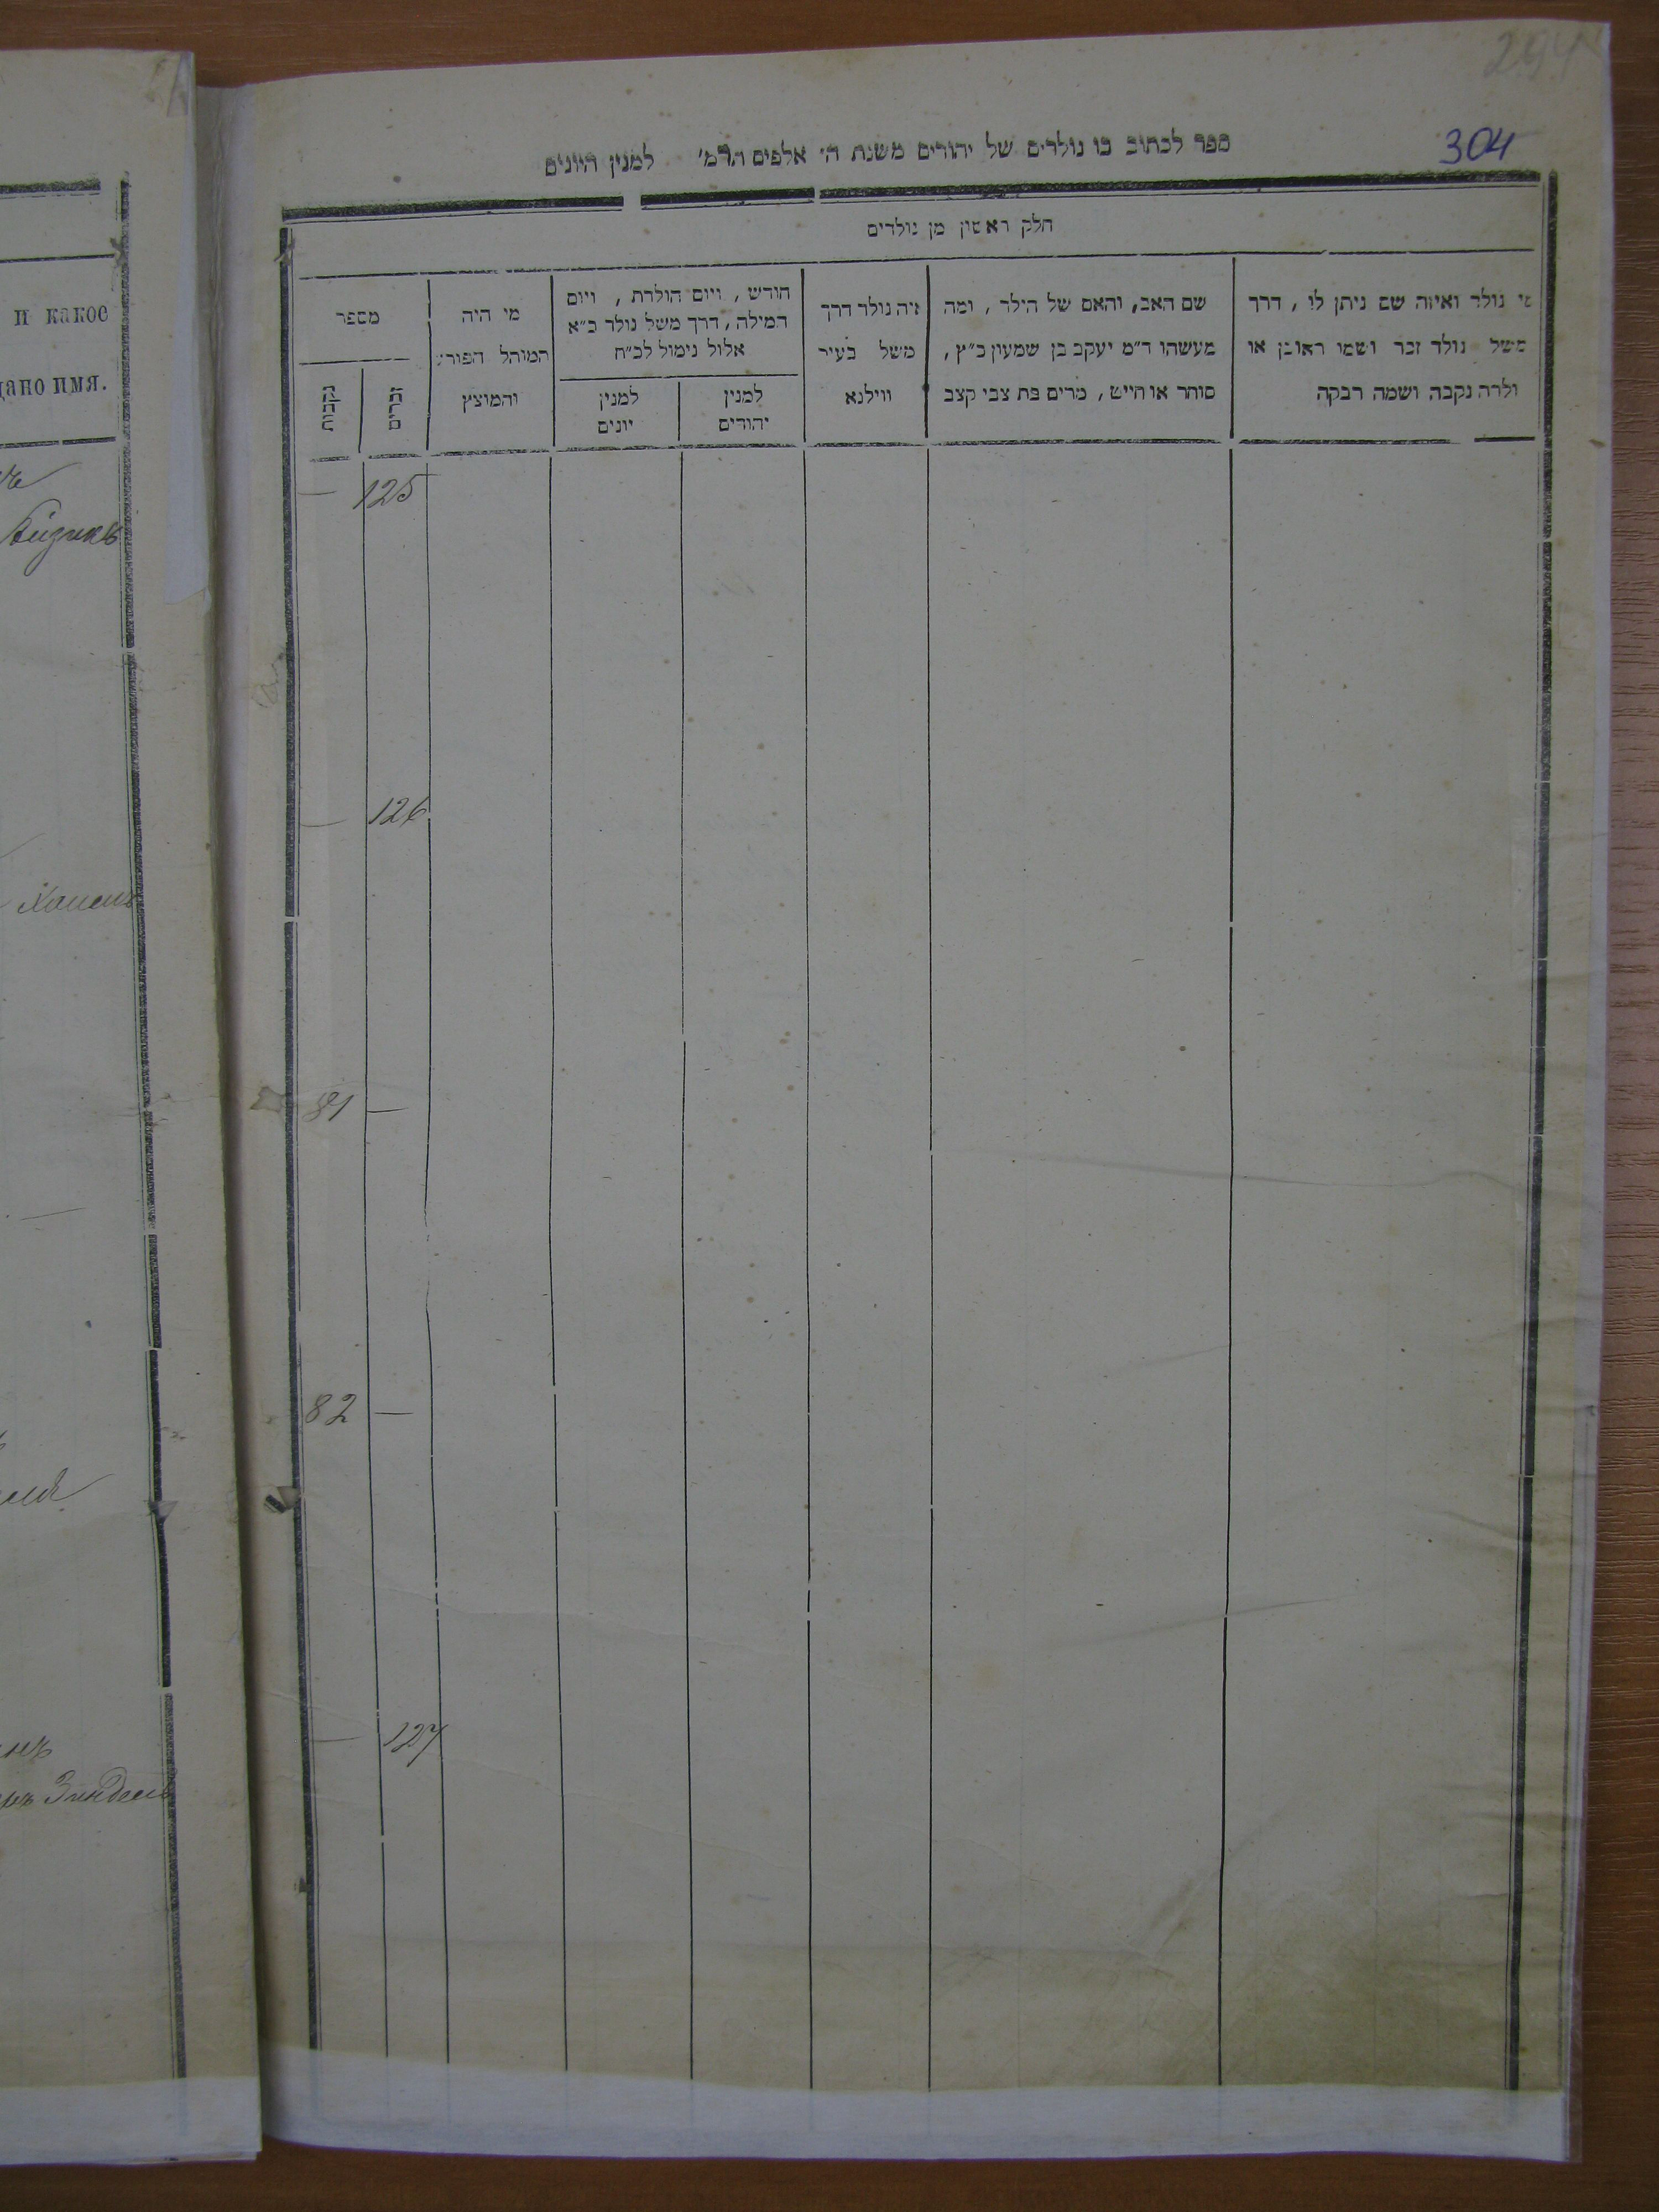 294
304
ספר לכתוב בו נולדים של יהודים משנת ה׳ אלפים תרמ׳ למנין היונים
חלק ראשון מן נולדים
מי נולד ואיזה שם ניתן לו, דרך
משל נולד זכר ושמו ראובן או
ולדה נקבה ושמה רבקה
שם האב, והאם של הילד, ומה
מעשהו ד״מ יעקב בן שמעון כ״ץ,
סוחר או חייט, מרים בת צבי קצב
איה נולד דרך
משל בעיר
ווילנא
חודש, ויום הולדת, ויום
המילה, דרך משל נולד כ״א
אלול נימול לכ״ח
למנין
יהודים
למנין
יונים
מי היה
המוהל הפורע
והמוצץ
מספר
זכרים
נקבות
— 125
— 126
81 —
82 —
— 127
и какое
дано имя.
Айзикъ
Зиндель